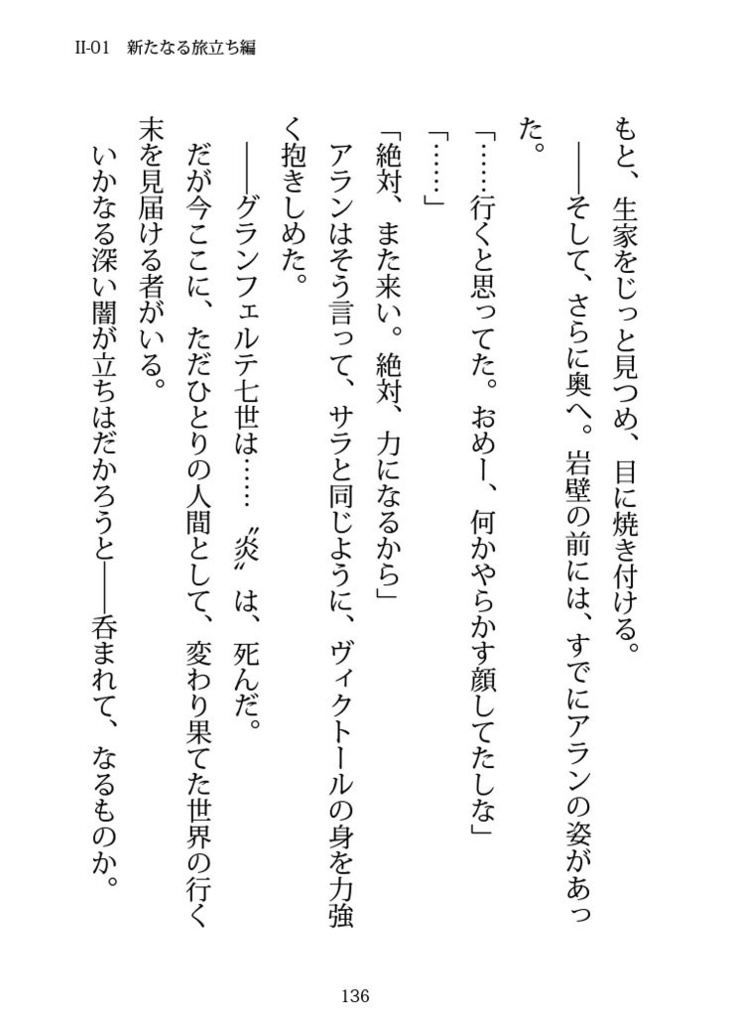 II-01　新たなる旅立ち編
もと、生家をじっと見つめ、目に焼き付ける。
――そして、さらに奥へ。岩壁の前には、すでにアランの姿があっ
た。
「……行くと思ってた。おめー、何かやらかす顔してたしな」
「……」
「絶対、また来い。絶対、力になるから」
アランはそう言って、サラと同じように、ヴィクトールの身を力強
く抱きしめた。
――グランフェルテ七世は……〝炎〟は、死んだ。
だが今ここに、ただひとりの人間として、変わり果てた世界の行く
末を見届ける者がいる。
いかなる深い闇が立ちはだかろうと――呑まれて、なるものか。
136